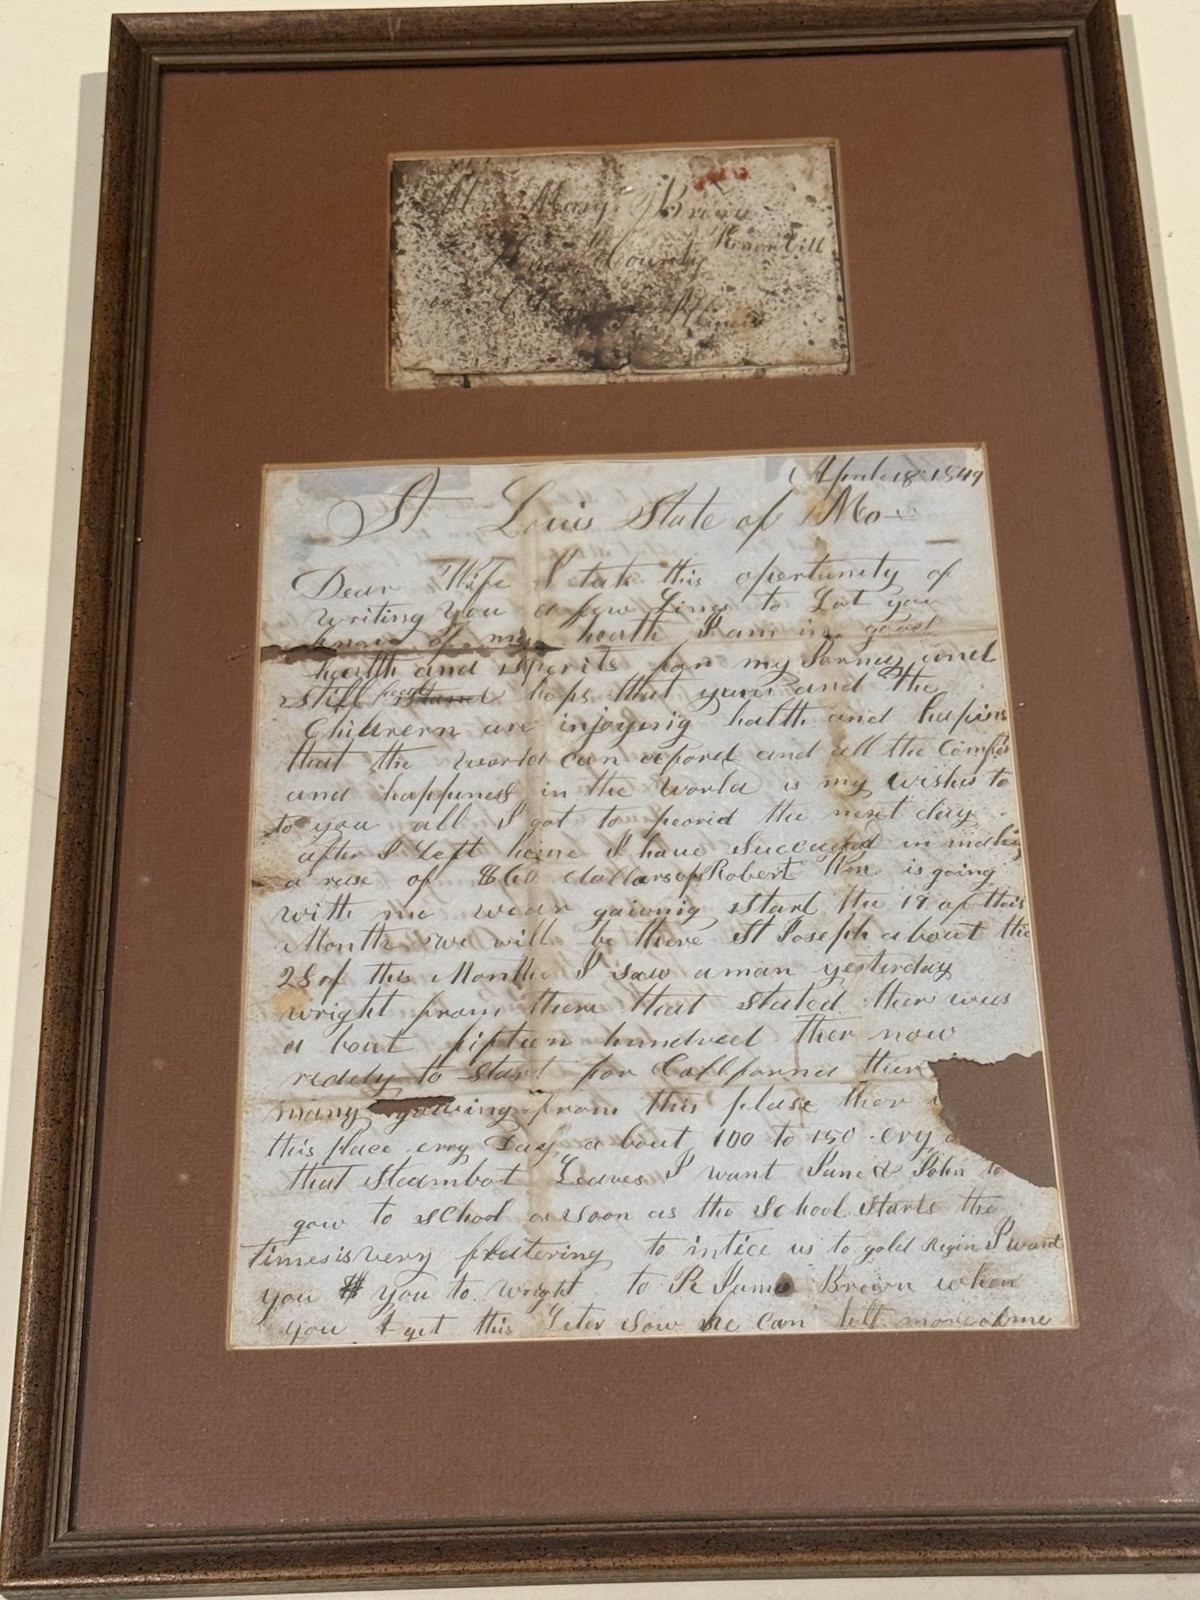 Mary Brown
Knoxvill
Knox County
Illinois
April 18 1849
St Louis State of Mo
Dear Wife I take this opertunity of
writing you a few Lines to Let you
know of my health I am in good
health and sperits for my Jorney and
still hops that you and the
Childrern are injoying halth and hapins
that the world can aford and all the Comfo
and happiness in the world is my wishes to
to you all I got to peorid the next day
after I Left home I have Succeded in making
a rase of 860 dollars of Robert Wm is going
with me wear gaionig start the 19 of this
Month we will be there St Joseph about the
28 of this Monthe I saw a man yesterday
wright from there that stated ther was
a bout fifteen hundred ther now
redely to start for Callfornia ther
many gowing from this plase ther
this place evry Day a bout 100 to 150 evry
that steambot Leaves I want Jane & John to
gow to school as soon as the School starts the
times is very flatering to intice us to gold Regin I want
you you to wright to R James Brown when
you get this Leter sow he can tell more of me